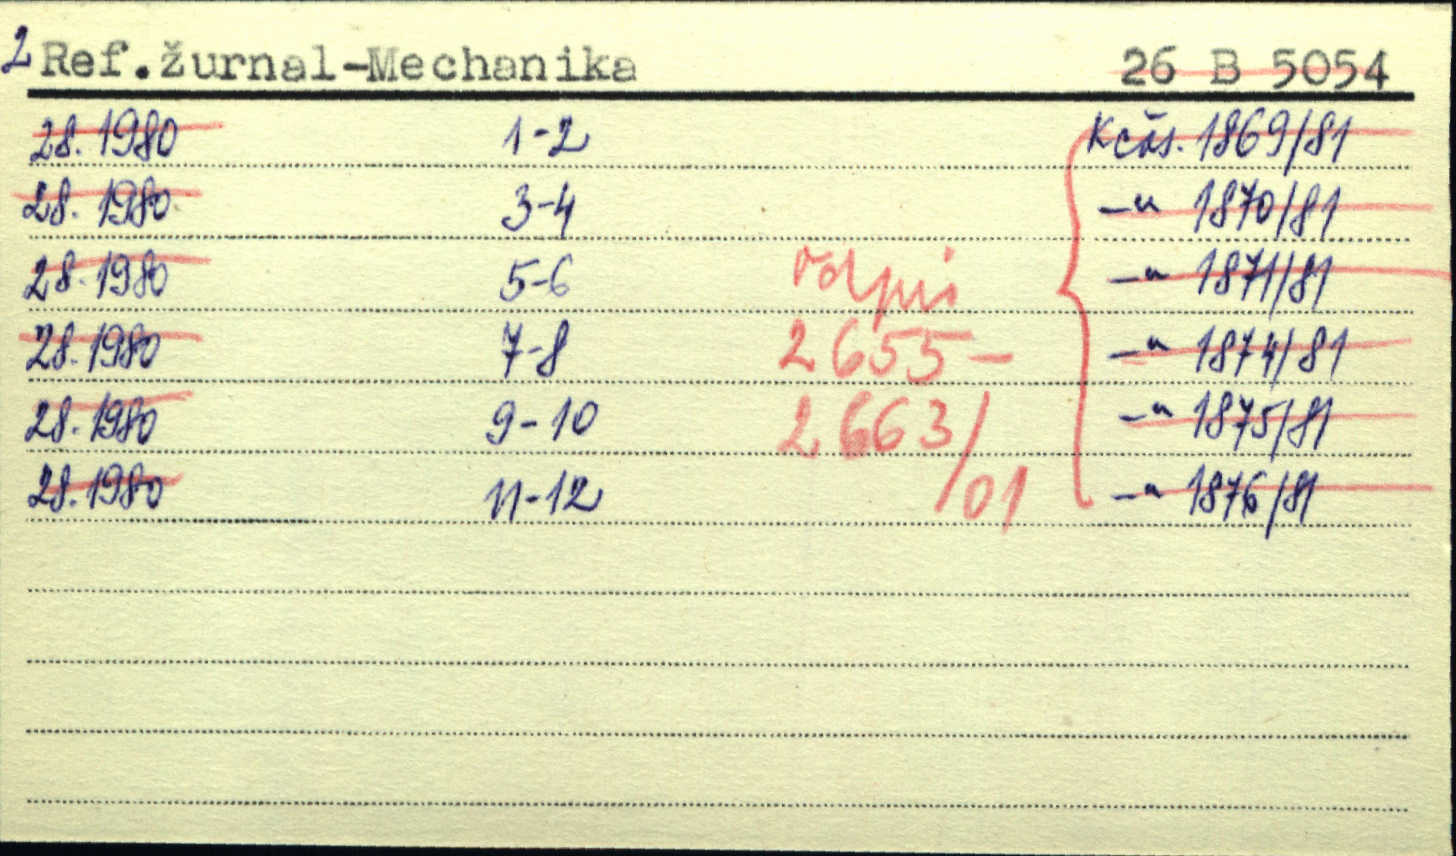 2 Ref.žurnal-Mechanika 26 B 5054
28. 1980 1-2 Kčás. 1869/81
28. 1980 3-4 -"- 1870/81
28. 1980 5-6 -"- 1871/81
28. 1980 7-8 -"- 1874/81
28. 1980 9-10 -"- 1875/81
28. 1980 11-12 -"- 1876/81
odpis
2655-
2663/01